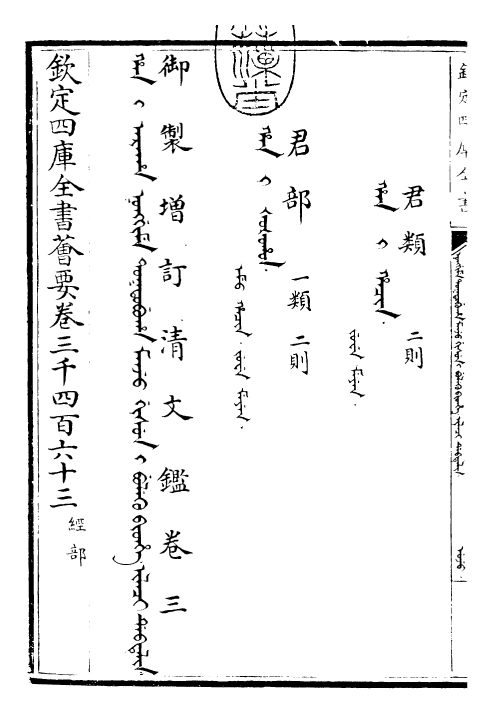 欽定四庫全書薈要卷三千四百六十三 經部
ᡥᠠᠨ ᡳ ᠠᡵᠠᡥᠠ ᠨᠣᠩᡤᡳᠮᡝ ᡨᠣᡴᡨᠣᠪᡠᡥᠠ ᠮᠠᠨᠵᡠ ᡤᡳᠰᡠᠨ ᡳ ᠪᡠᠯᡝᡴᡠ ᠪᡳᡨᡥᡝ ᡳᠯᠠᠴᡳ ᡩᡝᠪᡨᡝᠯᡳᠨ
御製增訂清文鑑卷三
ᡥᠠᠨ ᡳ ᡧᠣᡧᠣᡥᠣᠨ᠈ ᡝᠮᡠ ᡥᠠᠴᡳᠨ᠈ ᠵᡠᠸᡝ ᠮᡝᠶᡝᠨ᠈
君部 一類 二則
ᡥᠠᠨ ᡳ ᡥᠠᠴᡳᠨ᠈ ᠵᡠᠸᡝ ᠮᡝᠶᡝᠨ᠈
君類 二則
欽定四庫全書